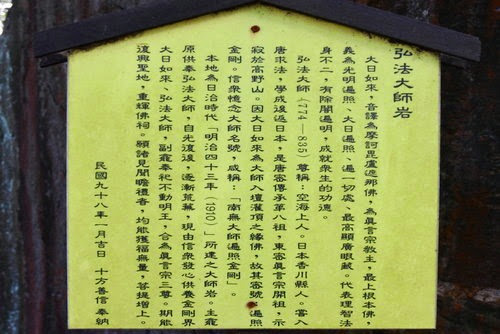 弘法大師岩
大日如來，音譯為摩訶毘盧遮那佛，為真言宗教主，最上根本佛，
義為光明遍照、大日遍照、遍一切處、最高顯廣眼藏。代表理智法
身不二，有除闇遍明，成就眾生的功德。
弘法大師（774—835）尊稱：空海上人。日本香川縣人。嘗入
唐求法，學成後返日本，是唐密傳承第八祖，東密真言宗開祖，示
寂於高野山。因大日如來為大師入壇灌頂之緣佛，故其密號：遍照
金剛。信眾憶念大師名號，咸稱：「南無大師遍照金剛」。
本地為日治時代「明治四十三年（1910）」所建之大師岩。主龕
原供奉弘法大師，自光復後，逐漸荒蕪，現由信眾發心供養金剛界
大日如來、弘法大師，副龕奉祀不動明王，合為真言宗三尊。期能
復興聖地，重輝佛祠。願諸見聞瞻禮者，均能獲福無量，菩提增上。
民國九十八年一月吉日 十方善信 奉納